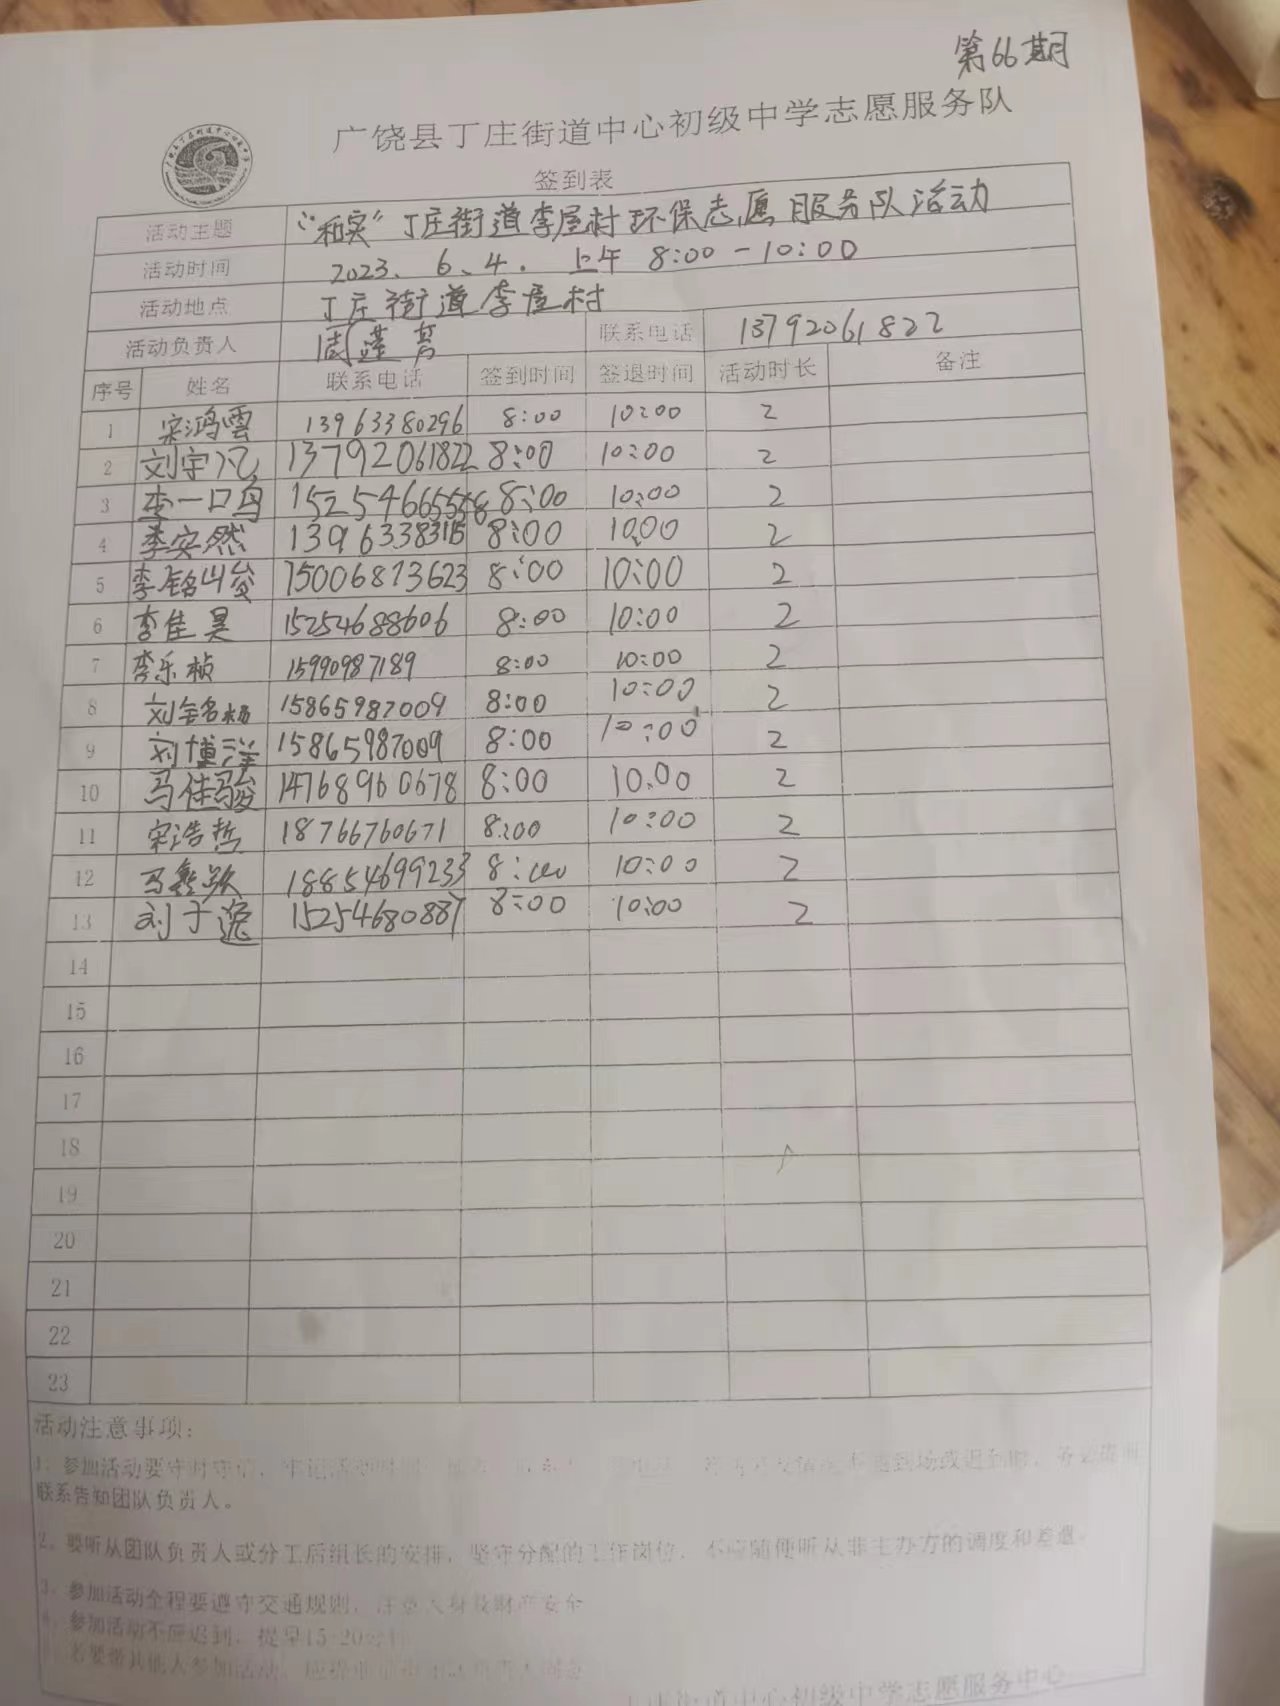 第66期
广饶县丁庄街道中心初级中学志愿服务队
签到表
活动主题 “和实”丁庄街道李屋村环保志愿服务队活动
活动时间 2023. 6. 4. 上午 8:00-10:00
活动地点 丁庄街道李屋村
活动负责人 周莲芳 联系电话 13792061822
序号 姓名 联系电话 签到时间 签退时间 活动时长 备注
1 宋鸿雲 13963380296 8:00 10:00 2
2 刘宇凡 13792061822 8:00 10:00 2
3 李一口鸟 8:00 10:00 2
4 李安然 13963383115 8:00 10:00 2
5 李铭峻 15006813623 8:00 10:00 2
6 李佳昊 15254688606 8:00 10:00 2
7 李乐桢 15990987189 8:00 10:00 2
8 刘 15865987009 8:00 10:00 2
9 刘博洋 15865987009 8:00 10:00 2
10 马佳骏 14768960678 8:00 10:00 2
11 宋浩哲 18766760671 8:00 10:00 2
12 马 18854699233 8:00 10:00 2
13 刘于逸 15254680887 8:00 10:00 2
14
15
16
17
18
19
20
21
22
23
活动注意事项：
1、参加活动要守时守信，牢记活动时间 到场或迟到时，
联系告知团队负责人。
2、要听从团队负责人或分工后组长的安排，坚守分配的工作岗位，不要随便听从非主办方的调度和差遣。
3、参加活动全程要遵守交通规则，注意人身及财产安全
4、参加活动不应迟到，提早15-20分钟
若要带其他人参加活动，
丁庄街道中心初级中学志愿服务中心